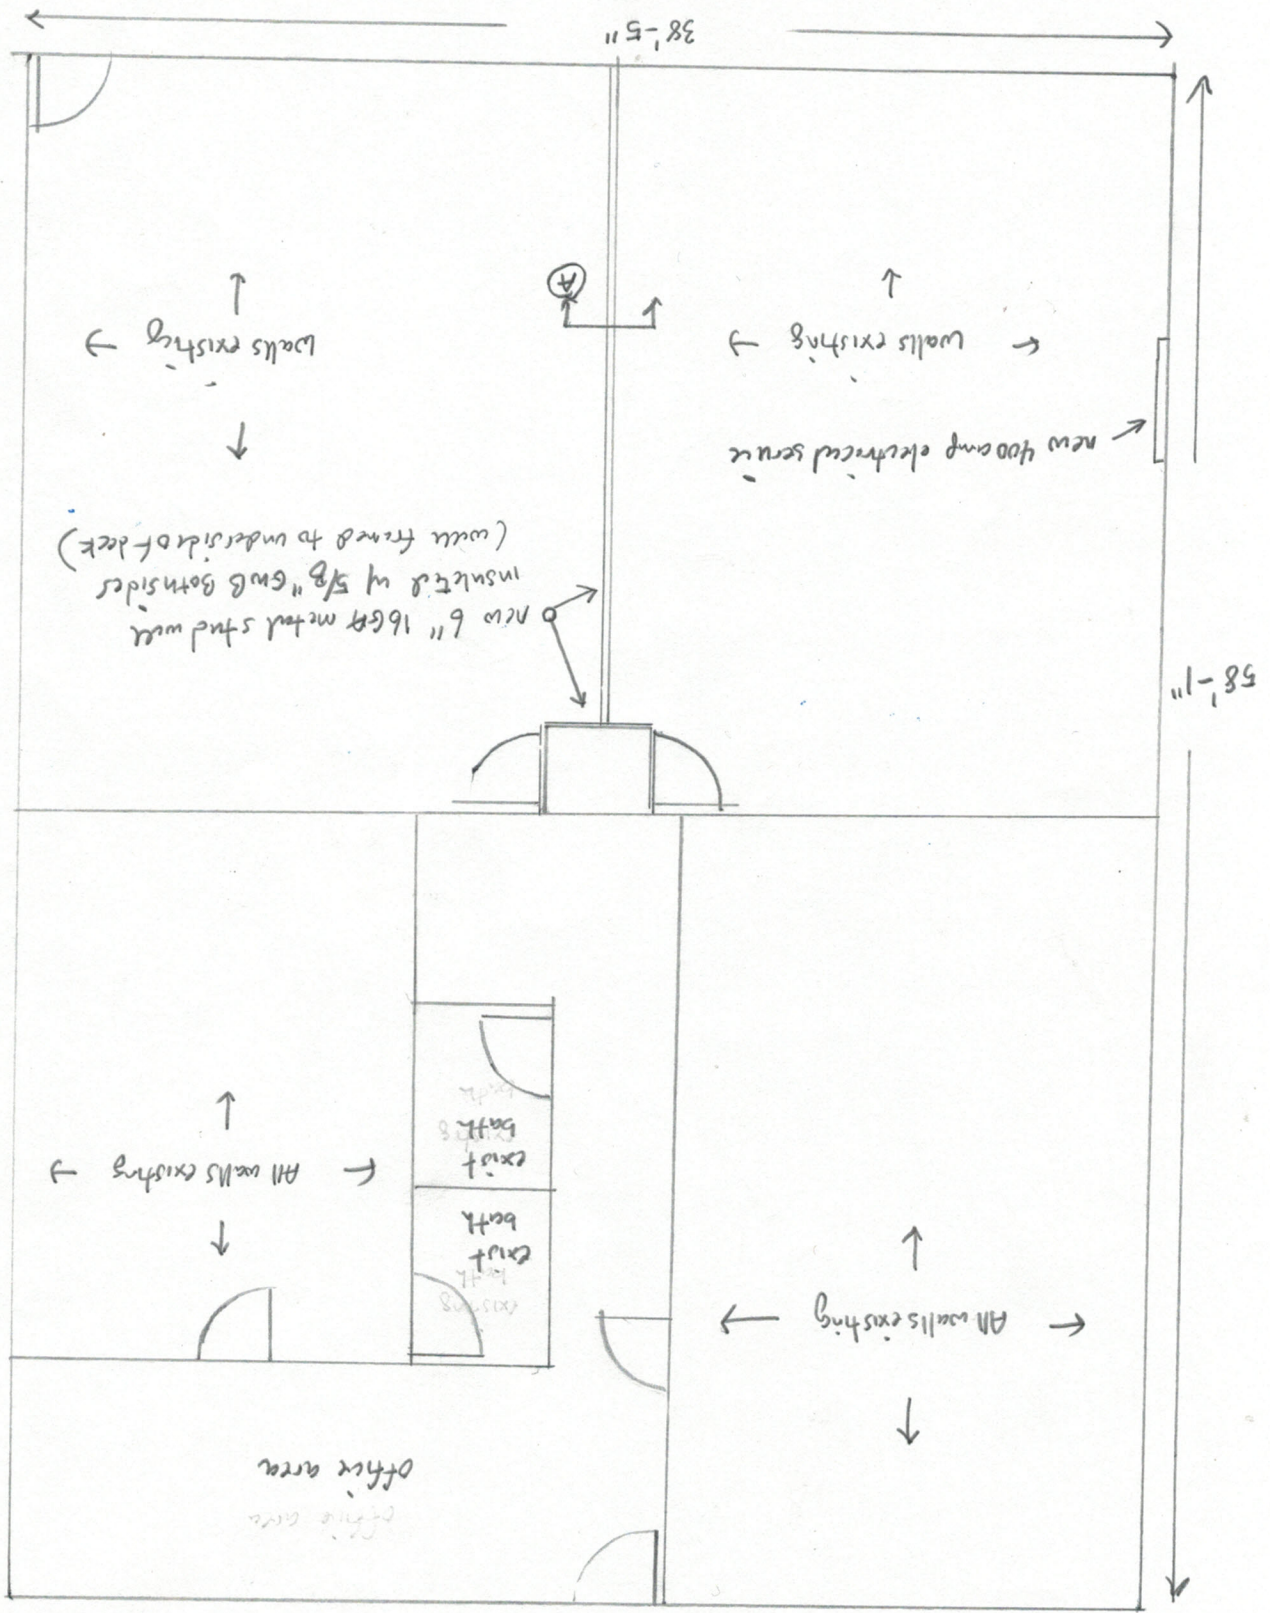 office area
office area
All walls existing
existing
bath
exist
bath
exist
bath
existing
bath
All walls existing
58'-1"
new 6" 16GA metal stud wall
insulated w/ 5/8" GWB Both sides
(wall framed to underside of deck)
new 400 amp electrical service
walls existing
walls existing
A
38'-5"